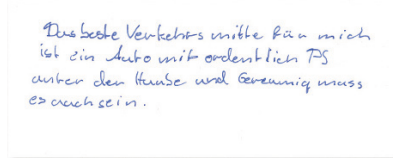 Das beste Verkehrsmitte für mich
ist ein Auto mit ordentlich PS
unter der Haube und Gereumig muss
es auch sein.